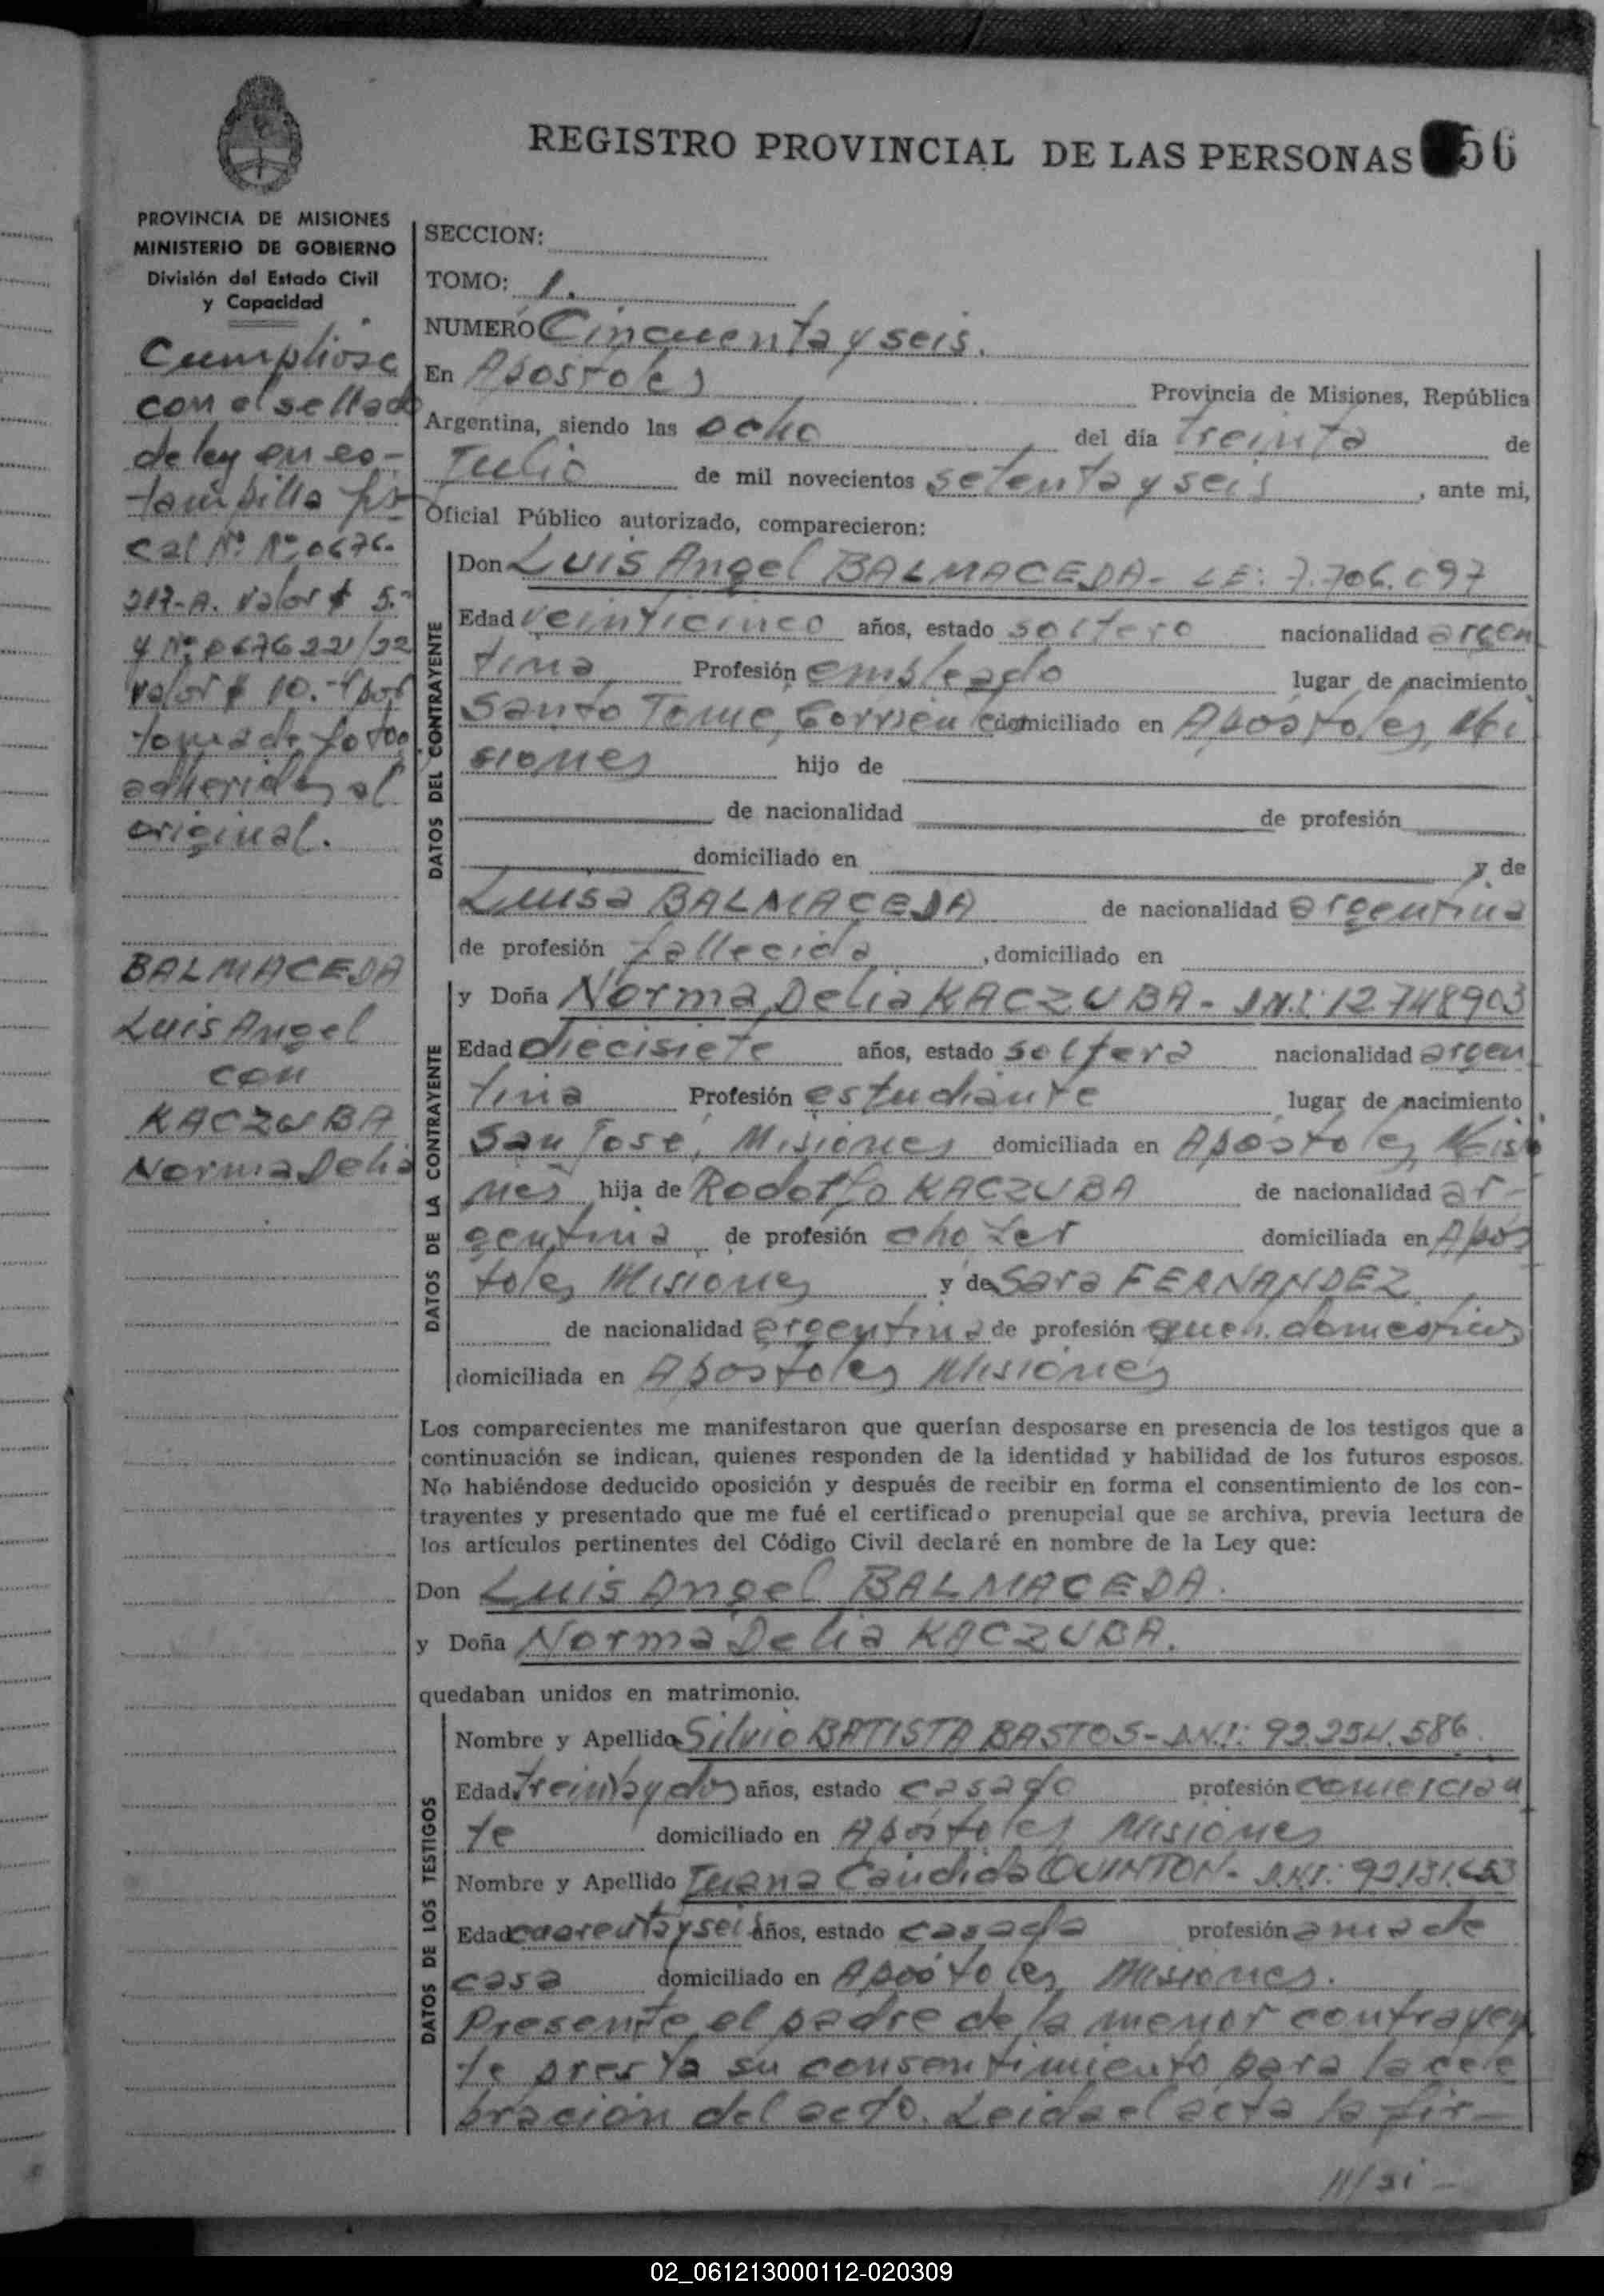 REGISTRO PROVINCIAL DE LAS PERSONAS 56
PROVINCIA DE MISIONES
MINISTERIO DE GOBIERNO
División del Estado Civil
y Capacidad
Cumpliose
con el sellado
de ley en es-
tampilla fis
cal Nº Nº 0676.
217-A. valor $ 5.-
y Nº 0676221/22
valor $ 10.- por
toma de fotoo
adheridas al
original.
BALMACEDA
Luis Angel
con
KACZUBA
Norma Delia
SECCION:
TOMO: 1.
NUMERO Cincuenta y seis.
En Apostoles Provincia de Misiones, República
Argentina, siendo las ocho del día treinta de
Julio de mil novecientos setenta y seis, ante mi,
Oficial Público autorizado, comparecieron:
DATOS DEL CONTRAYENTE
Don Luis Angel BALMACEDA - LE: 7.706.097
Edad veinticinco años, estado soltero nacionalidad argen
tina Profesión empleado lugar de nacimiento
Santo Tome, Corrien domiciliado en Apóstoles, Mi
siones hijo de
de nacionalidad de profesión
domiciliado en y de
Luisa BALMACEDA de nacionalidad argentina
de profesión fallecida, domiciliado en
DATOS DE LA CONTRAYENTE
y Doña Norma Delia KACZUBA - D.N.I: 12748903
Edad diecisiete años, estado soltera nacionalidad argen
tina Profesión estudiante lugar de nacimiento
San José, Misiones domiciliada en Apóstoles, Misio
nes hija de Rodolfo KACZUBA de nacionalidad ar-
gentina de profesión chofer domiciliada en Após
toles Misiones y de Sara FERNANDEZ
de nacionalidad argentina de profesión queh. domesticos
domiciliada en Apostoles Misiones
Los comparecientes me manifestaron que querían desposarse en presencia de los testigos que a
continuación se indican, quienes responden de la identidad y habilidad de los futuros esposos.
No habiéndose deducido oposición y después de recibir en forma el consentimiento de los con-
trayentes y presentado que me fué el certificado prenupcial que se archiva, previa lectura de
los artículos pertinentes del Código Civil declaré en nombre de la Ley que:
Don Luis Angel BALMACEDA.
y Doña Norma Delia KACZUBA.
quedaban unidos en matrimonio.
DATOS DE LOS TESTIGOS
Nombre y Apellido Silvio BATISTA BASTOS - D.N.I: 92.254.586
Edad treinta y dos años, estado casado profesión comercian
te domiciliado en Apóstoles Misiones
Nombre y Apellido Juana Candida QUINTON - D.N.I: 92131.653
Edad cuarenta y seis años, estado casada profesión ama de
casa domiciliado en Apóstoles Misiones.
Presente el padre de la menor contrayen
te presta su consentimiento para la cele
bración del acto. Leida el acta la fir-
11/si -
02_061213000112-020309